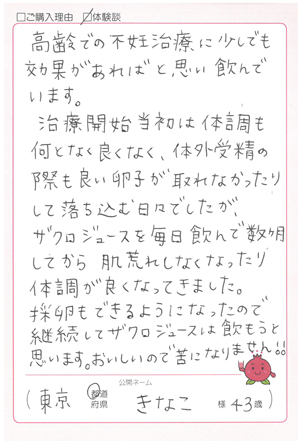 □ご購入理由 ☑体験談
高齢での不妊治療に少しでも
効果があればと思い飲んで
います。
治療開始当初は体調も
何となく良くなく、体外受精の
際も良い卵子が取れなかったり
して落ち込む日々でしたが、
ザクロジュースを毎日飲んで数ヶ月
してから肌荒れしなくなったり
体調が良くなってきました。
採卵もできるようになったので
継続してザクロジュースは飲もうと
思います。おいしいので苦になりません!!
公開ネーム
(東京 都道府県 きなこ 様 43歳)